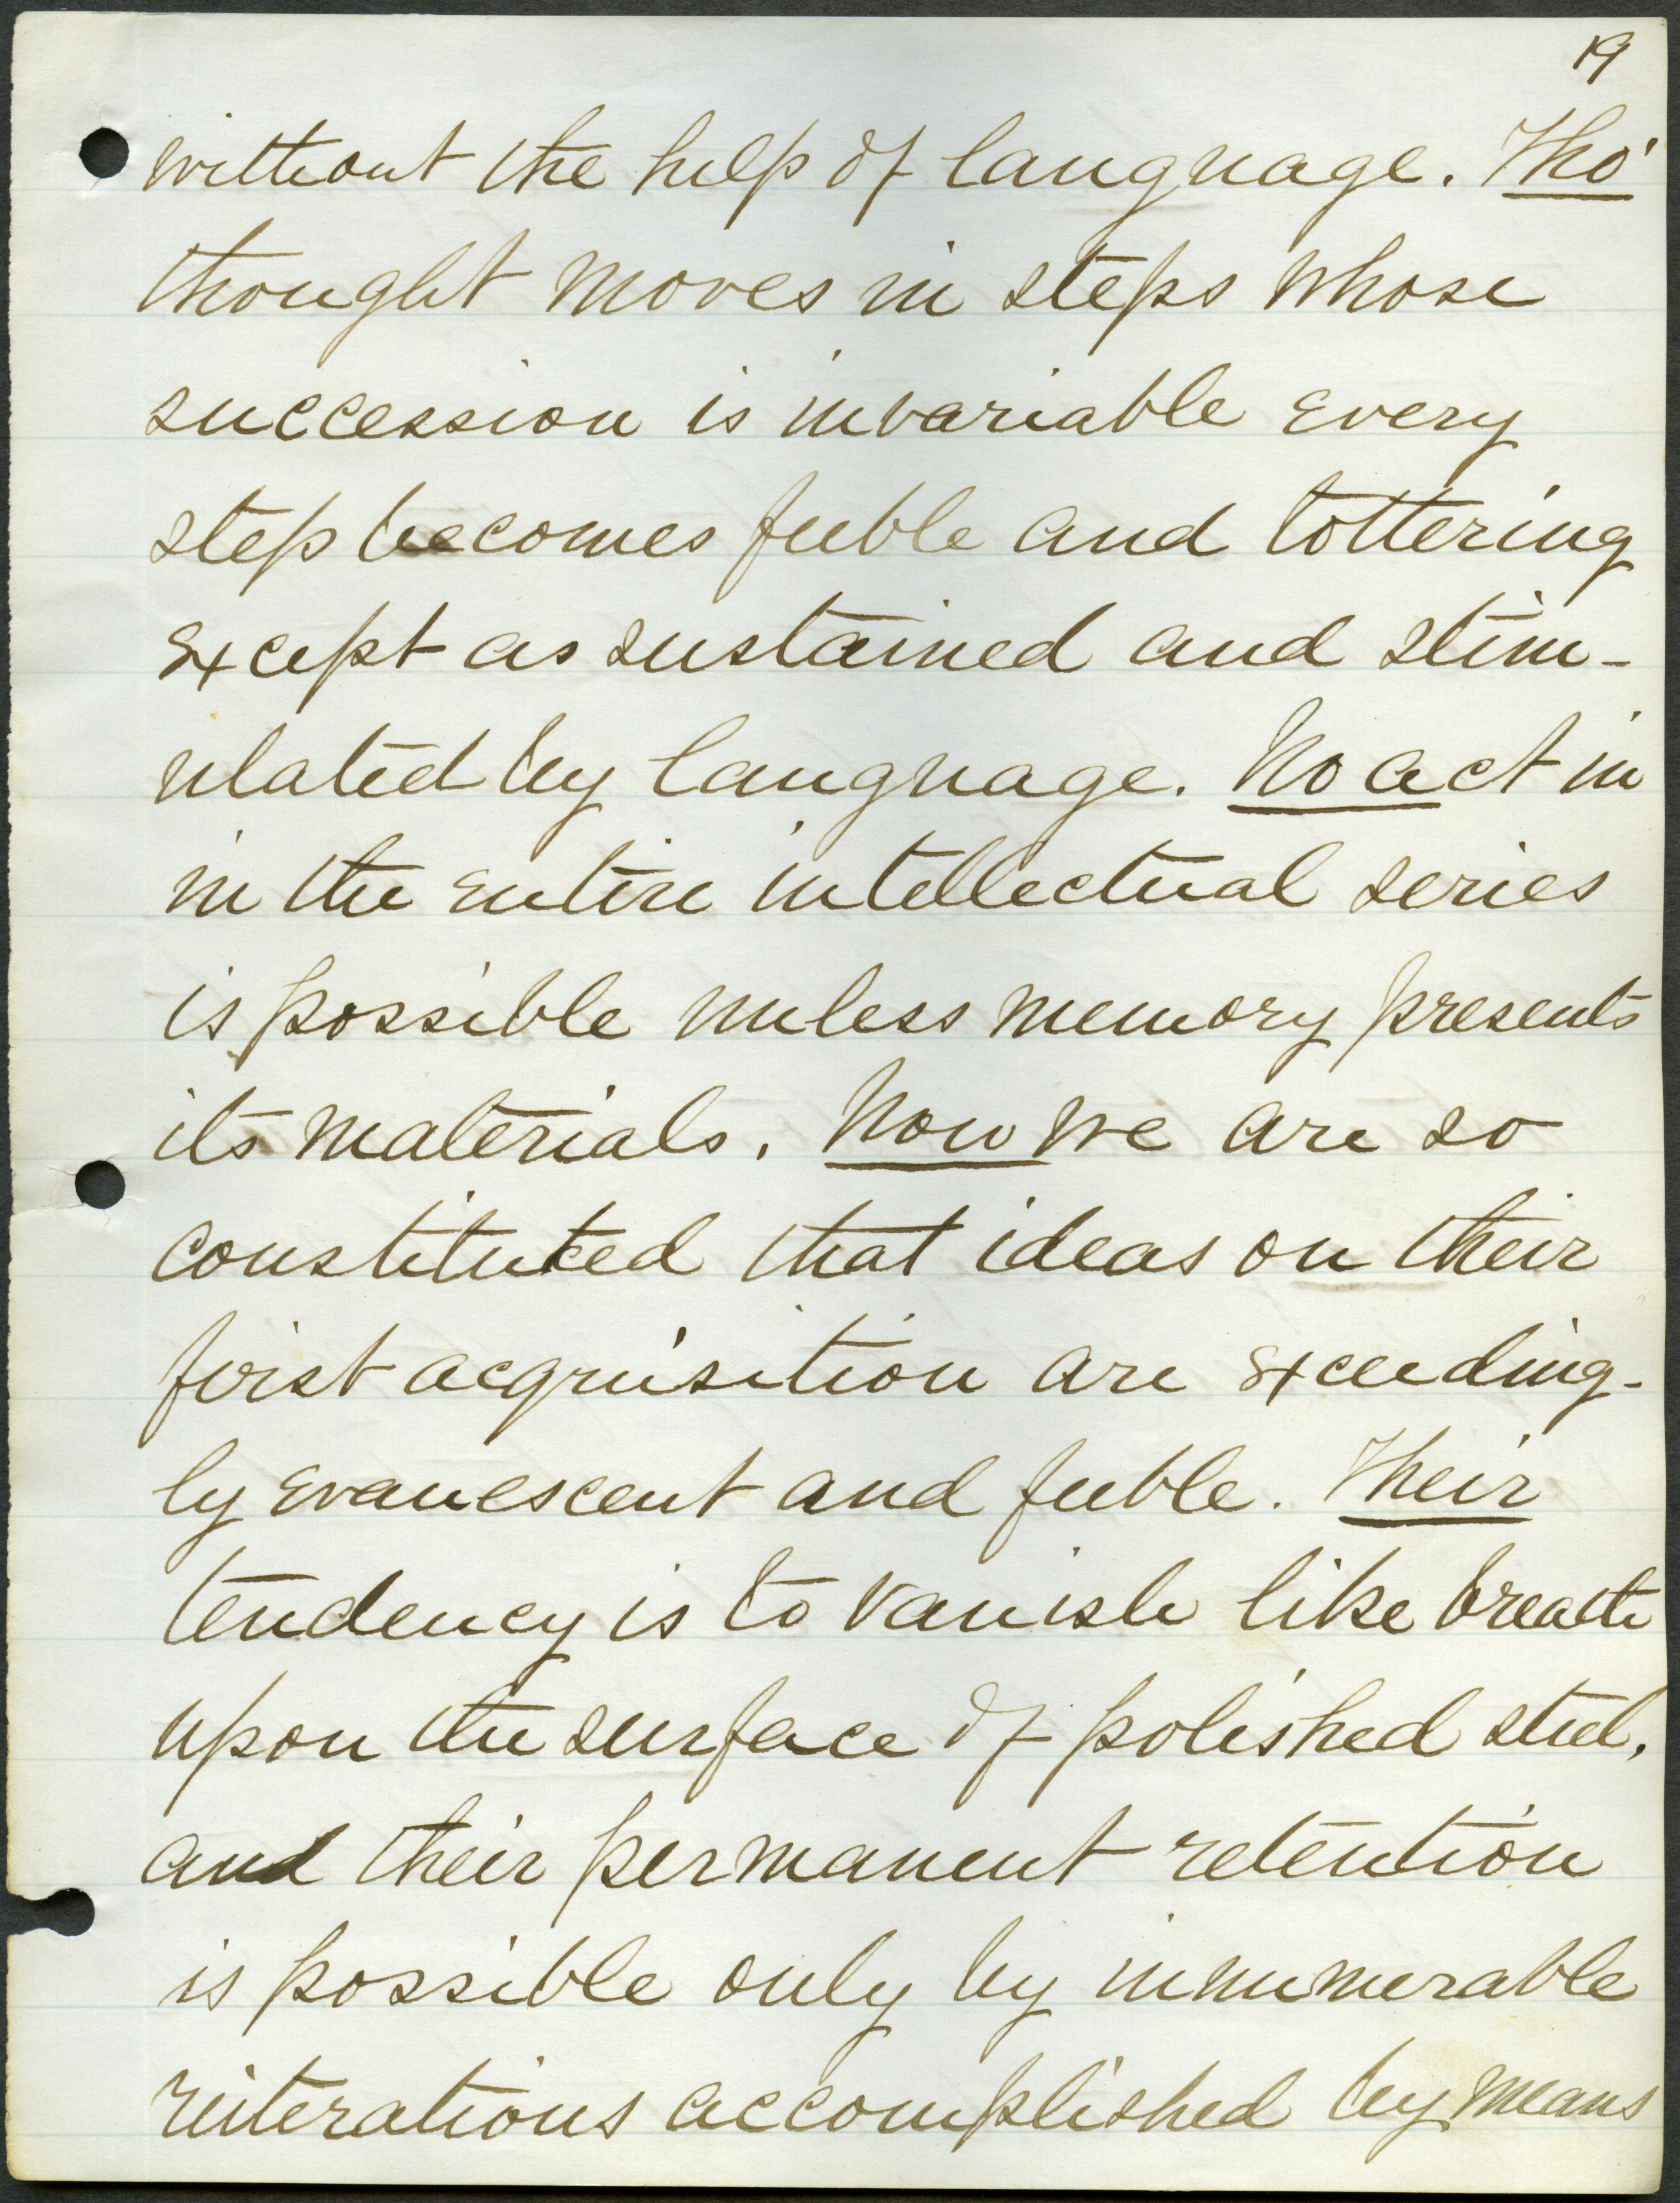 19
without the help of language. Tho'
thought moves in steps whose
succession is invariable every
step becomes feeble and tottering
except as sustained and stim-
ulated by language. No act in
in the entire intellectual series
is possible unless memory presents
its materials. Now we are so
constituted that ideas on their
first acquisition are exceeding-
ly evanescent and feeble. Their
tendency is to vanish like breath
upon the surface of polished steel,
and their permanent retention
is possible only by innumerable
reiterations accomplished by means